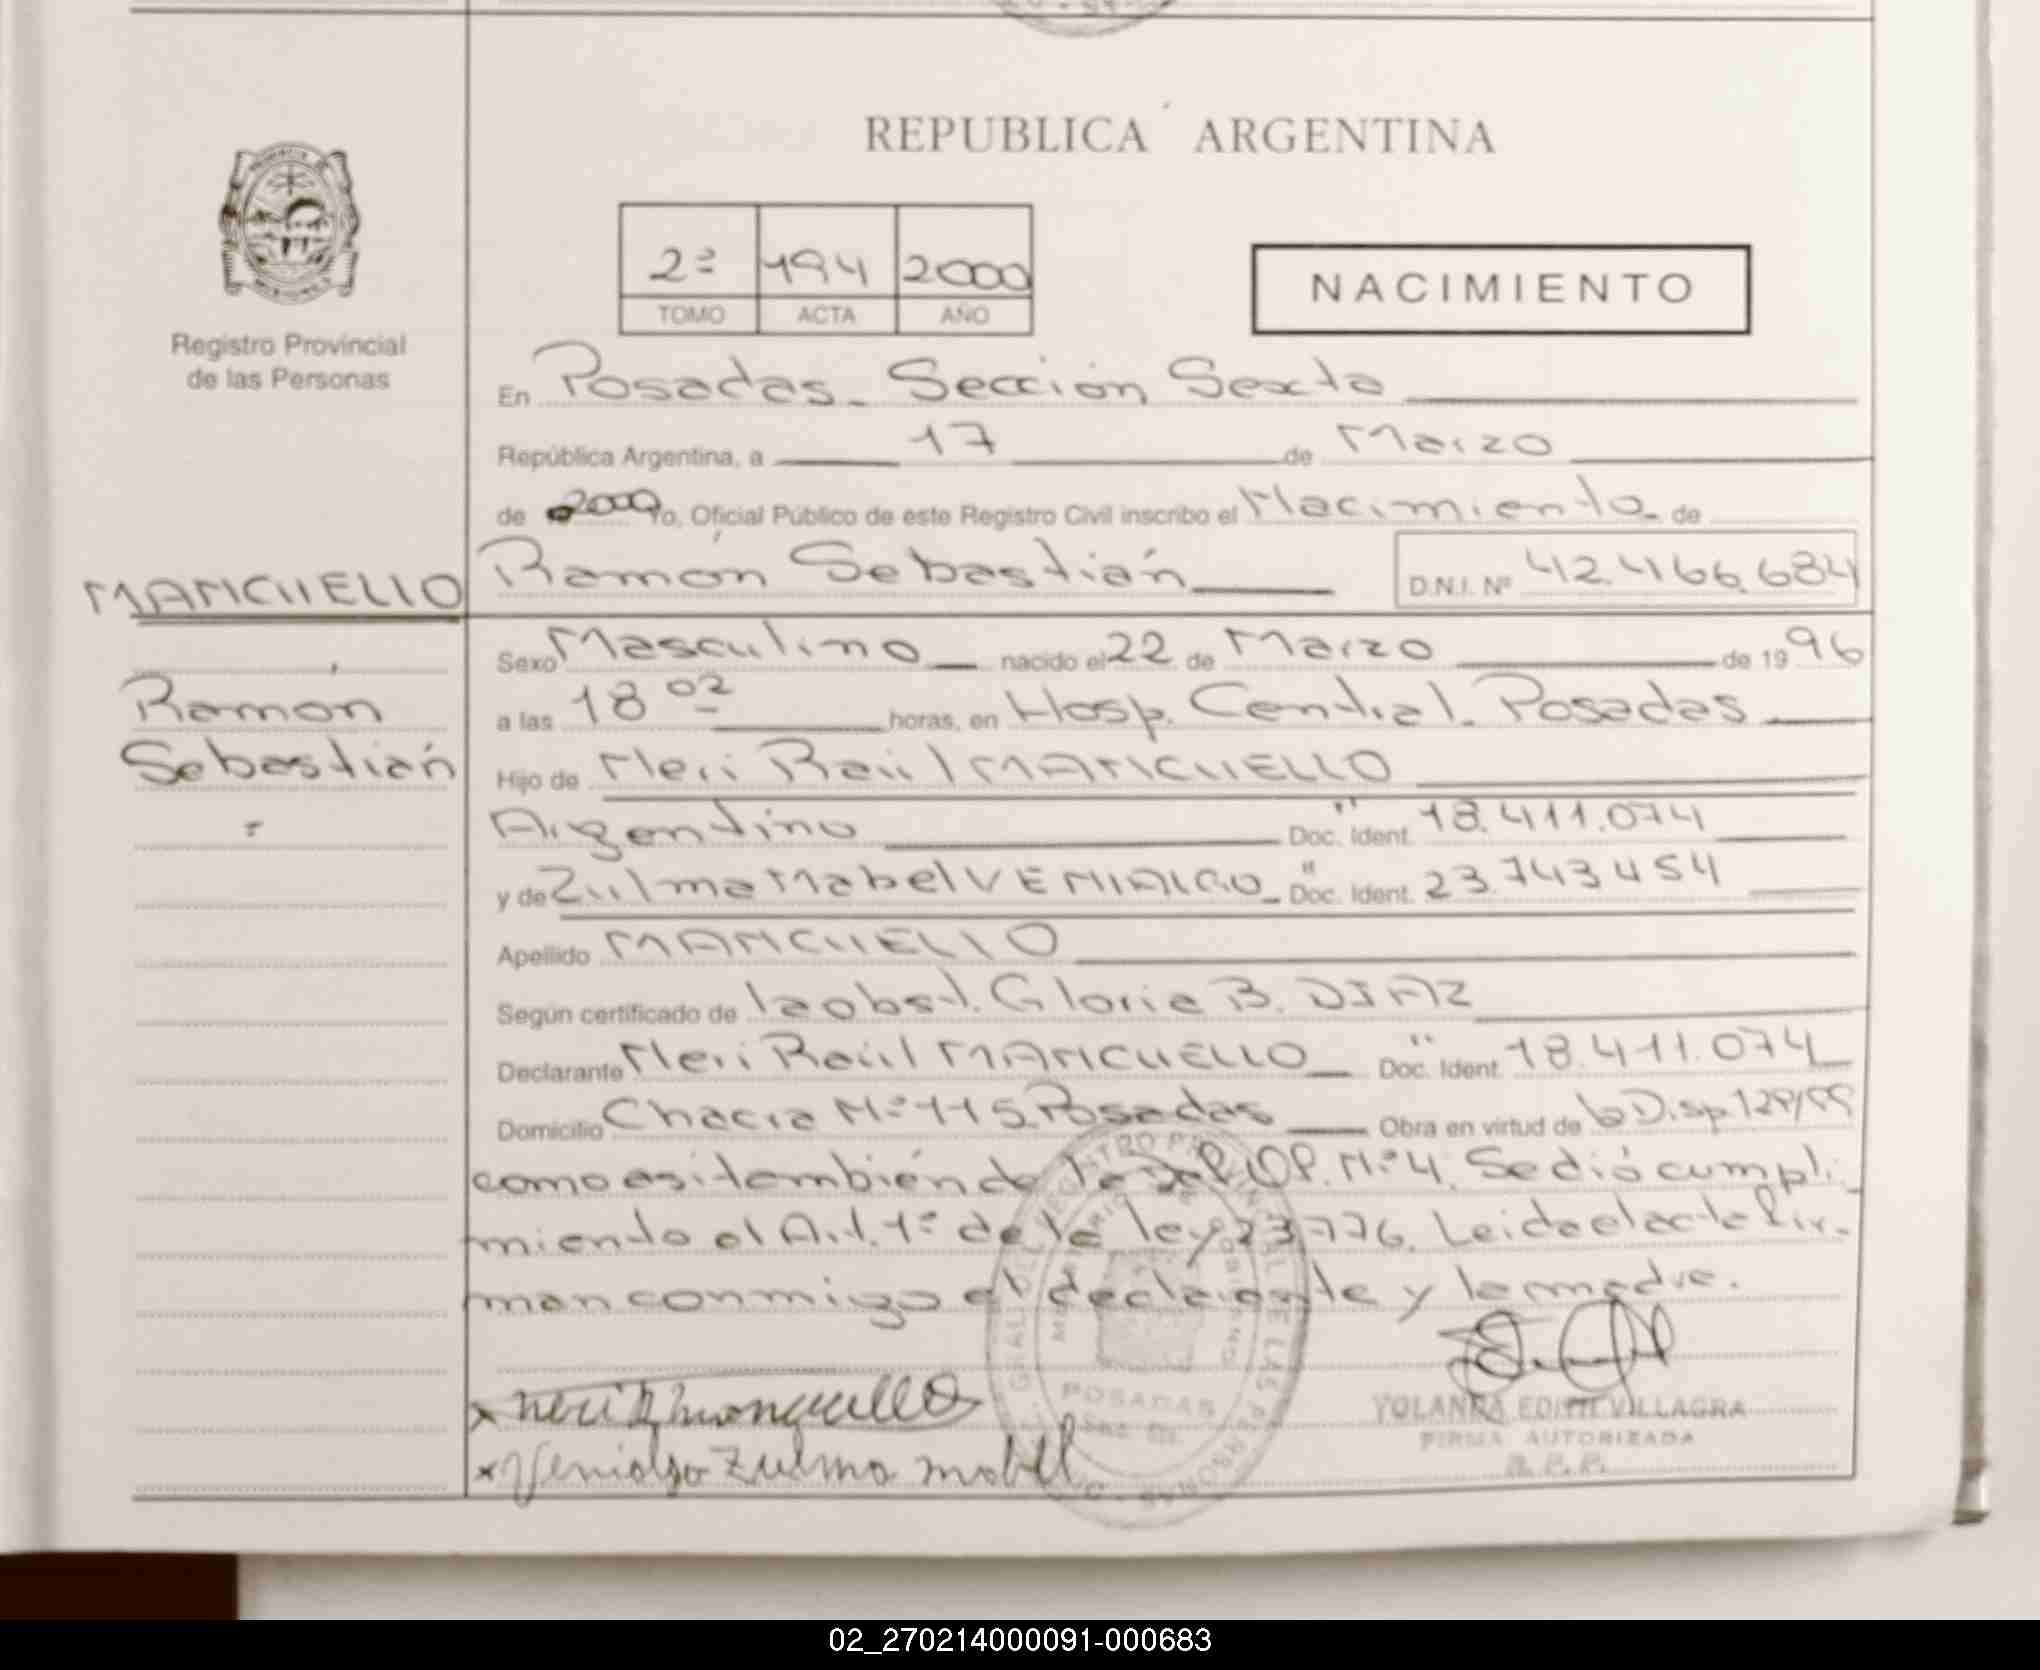 REPUBLICA ARGENTINA
2º 194 2000
TOMO ACTA AÑO
NACIMIENTO
Registro Provincial
de las Personas
En Posadas - Sección Sexta
República Argentina, a 17 de Marzo
de 2000 Yo, Oficial Público de este Registro Civil inscribo el Nacimiento - de
MANCUELLO
Ramón Sebastián D.N.I. Nº 42.466.684
Sexo Masculino nacido el 22 de Marzo de 1996
Ramón
Sebastián
a las 18 02 horas, en Hosp. Central. Posadas
Hijo de Neri Raúl MANCUELLO
Argentino Doc. Ident. 18.411.074
y de Zulma Mabel VENIALGO - Doc. Ident. 23.743.454
Apellido MANCUELLO
Según certificado de la obst. Gloria B. DIAZ
Declarante Neri Raúl MANCUELLO Doc. Ident. 18.411.074
Domicilio Chacra Nº 115 Posadas Obra en virtud de la Disp 129/99
como asi también de la OP. Nº 4. Se dió cumpli-
miento al Art. 1º de la ley 23776. Leida el acta fir-
man conmigo el declarante y la madre.
x Neri R Mancuello
x Venialgo Zulma mabel
YOLANDA EDITH VILLAGRA
FIRMA AUTORIZADA
R. P. P.
POSADAS
02_270214000091-000683